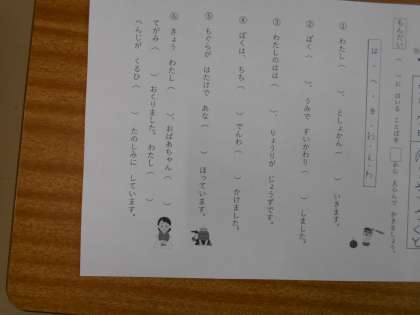 もんだい
（　）に はいる ことばを □から えらんで かきましょう。
は・へ・を・お・え・わ
① わたし（　）、としょかん（　）いきます。
② ぼく（　）、うみで すいかわり（　）しました。
③ わたしのはは（　）、りょうりが じょうずです。
④ ぼくは、ちち（　）でんわ（　）かけました。
⑤ もぐらが はたけで あな（　）ほっています。
⑥ きょう わたし（　）、おばあちゃん（　）
てがみ（　）おくりました。わたし（　）
へんじが くるひ（　）たのしみに しています。